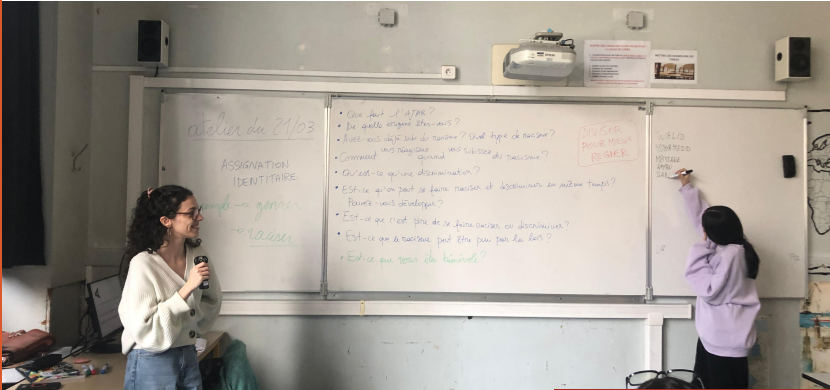 atelier du 21/03
ASSIGNATION
IDENTITAIRE
→ genrer
→ raciser
• Que fait l'ATAR?
• De quelle origine êtes-vous?
• Avez-vous déjà subi du racisme? Quel type de racisme?
• Comment vous réagissez quand vous subissez du racisme?
• Qu'est-ce qu'une discrimination?
• Est-ce qu'on peut se faire raciser et discriminer en même temps?
Pouvez-vous développer?
• Est-ce que c'est pire de se faire raciser ou discriminer?
• Est-ce que le racisme peut être puni par la loi?
• Est-ce que vous êtes bénévole?
DIVISER
POUR MIEUX
REGNER
WALID